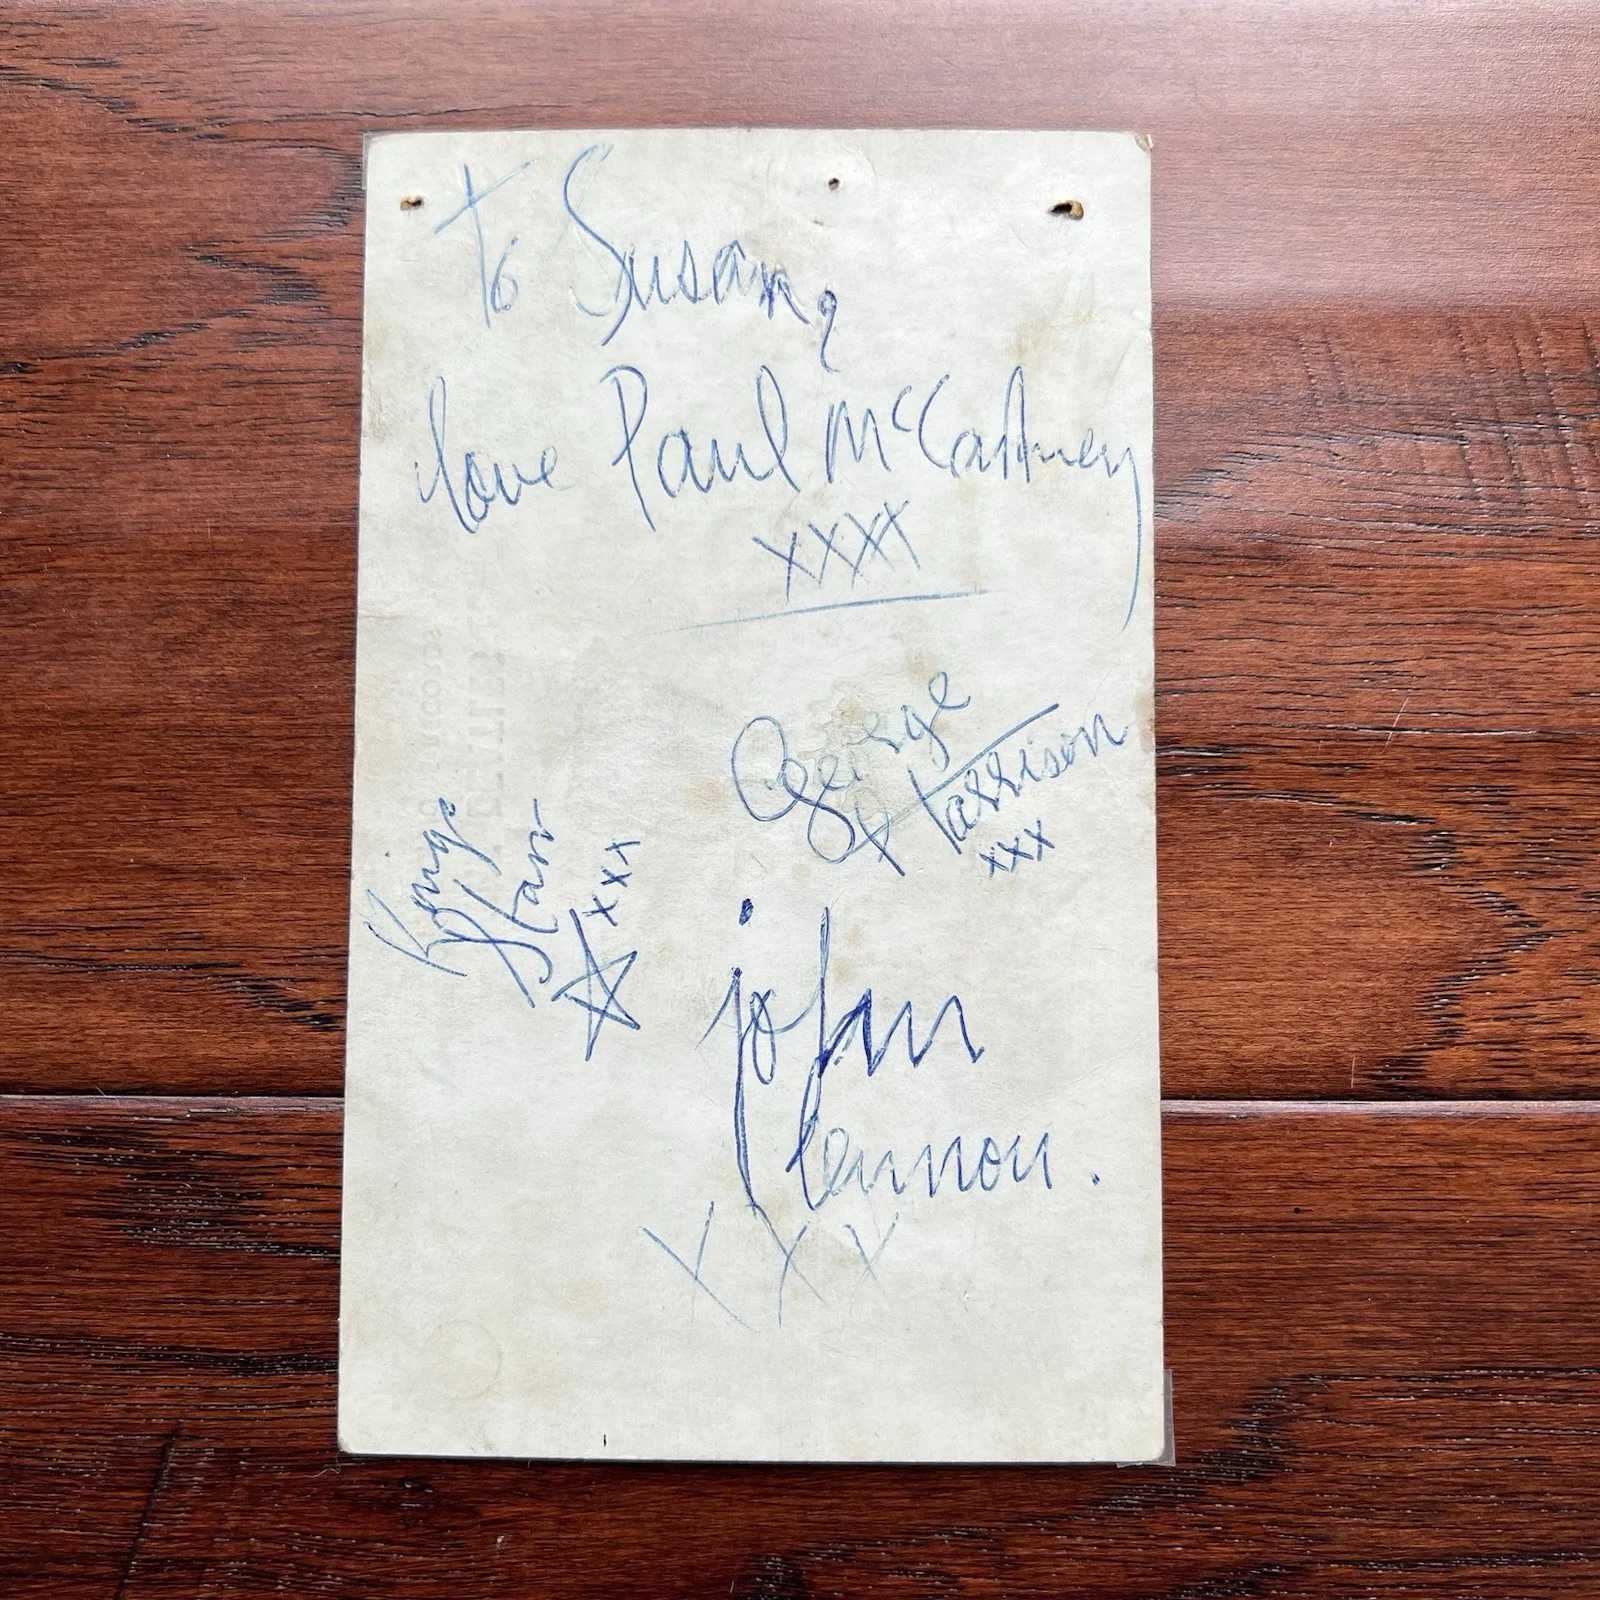 To Susan,
love Paul McCartney
XXXX
George
Harrison
xxx
Ringo
Starr
xxx
john
lennon.
XXX